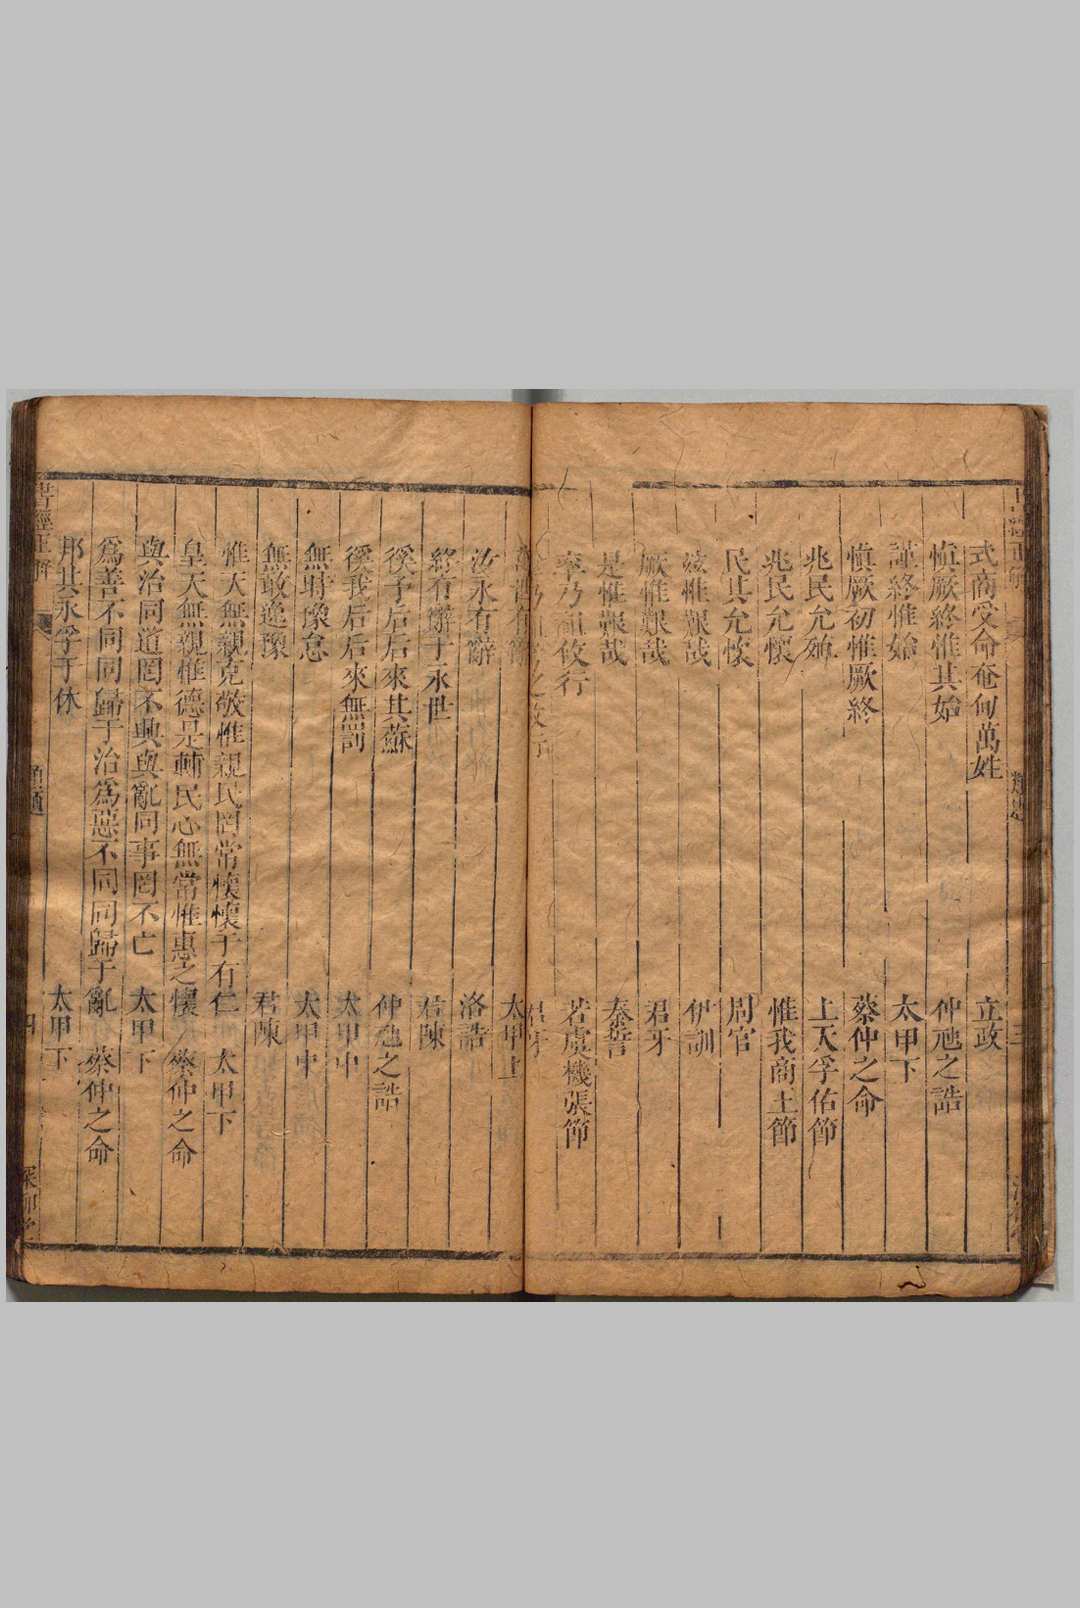 式商受命奄甸萬姓 立政
愼厥終惟其始 仲虺之誥
謹終惟始 太甲下
愼厥初惟厥終 蔡仲之命
兆民允殖 上天孚佑節
兆民允懷 惟我商王節
民其允懷 周官
茲惟艱哉 伊訓
厥惟艱哉 君牙
是惟艱哉 秦誓
率乃祖攸行 若虞機張節
之攸行 君牙
萬世有辭 太甲上
汝永有辭 洛誥
終有辭于永世 君陳
徯予后后來其蘇 仲虺之誥
徯我后后來無罰 太甲中
無時豫怠 太甲中
無敢逸豫 君陳
惟天無親克敬惟親民罔常懷懷于有仁 太甲下
皇天無親惟德是輔民心無常惟惠之懷 蔡仲之命
與治同道罔不興與亂同事罔不亡 太甲下
爲善不同同歸于治爲惡不同同歸于亂 蔡仲之命
邦其永孚于休 太甲下
書經正解 通題 四 深柳堂